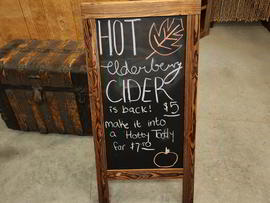 HOT
elderberry
CIDER
is back! $5
make it into
a Hotty Toddy
for $7.50